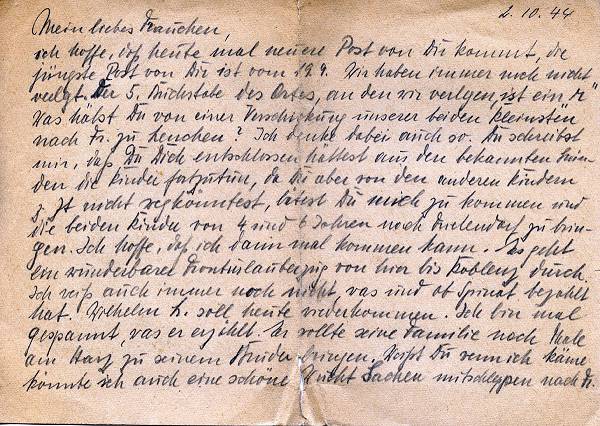 2.10.44
Mein liebes Frauchen,
ich hoffe, daß heute mal neuere Post von Dir kommt, die
jüngste Post von Dir ist vom 19.9. Wir haben immer noch nicht
verlegt. Der 5. Buchstabe des Ortes, an den wir verlegen, ist ein "r"
Was hältst Du von einer Verschickung unserer beiden Kleinsten
nach Fr. zu Lenchen? Ich denke dabei auch so. Du schreibst
mir, daß Du Dich entschlossen hättest aus den bekannten Grün-
den die Kinder fortzutun, da Du aber von den anderen Kindern
z. Zt nicht wegkönntest, bätest Du mich zu kommen und
die beiden Kinder von 4 und 6 Jahren nach zu brin-
gen. Ich hoffe, daß ich dann mal kommen kann. Es geht
ein wunderbarer Fronturlauberzug von hier bis Koblenz durch.
Ich weiß auch immer noch nicht, was und ob Spinat bezahlt
hat. Wilhelm K. soll heute wiederkommen. Ich bin mal
gespannt, was er erzählt. Er sollte seine Familie nach Thale
am Harz zu seinem Bruder bringen. Weißt Du wenn ich käme
könnte ich auch eine schöne Sachen mitschleppen nach Fr.